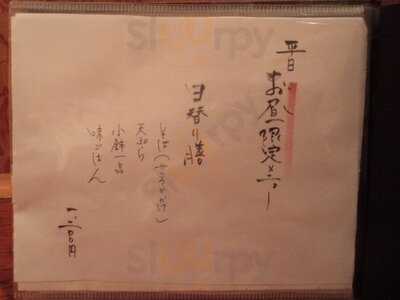 平日 お昼限定メニュー
日替り膳
そば(
天ぷら
小鉢一品
味ごはん
一、二〇〇円
sluurpy